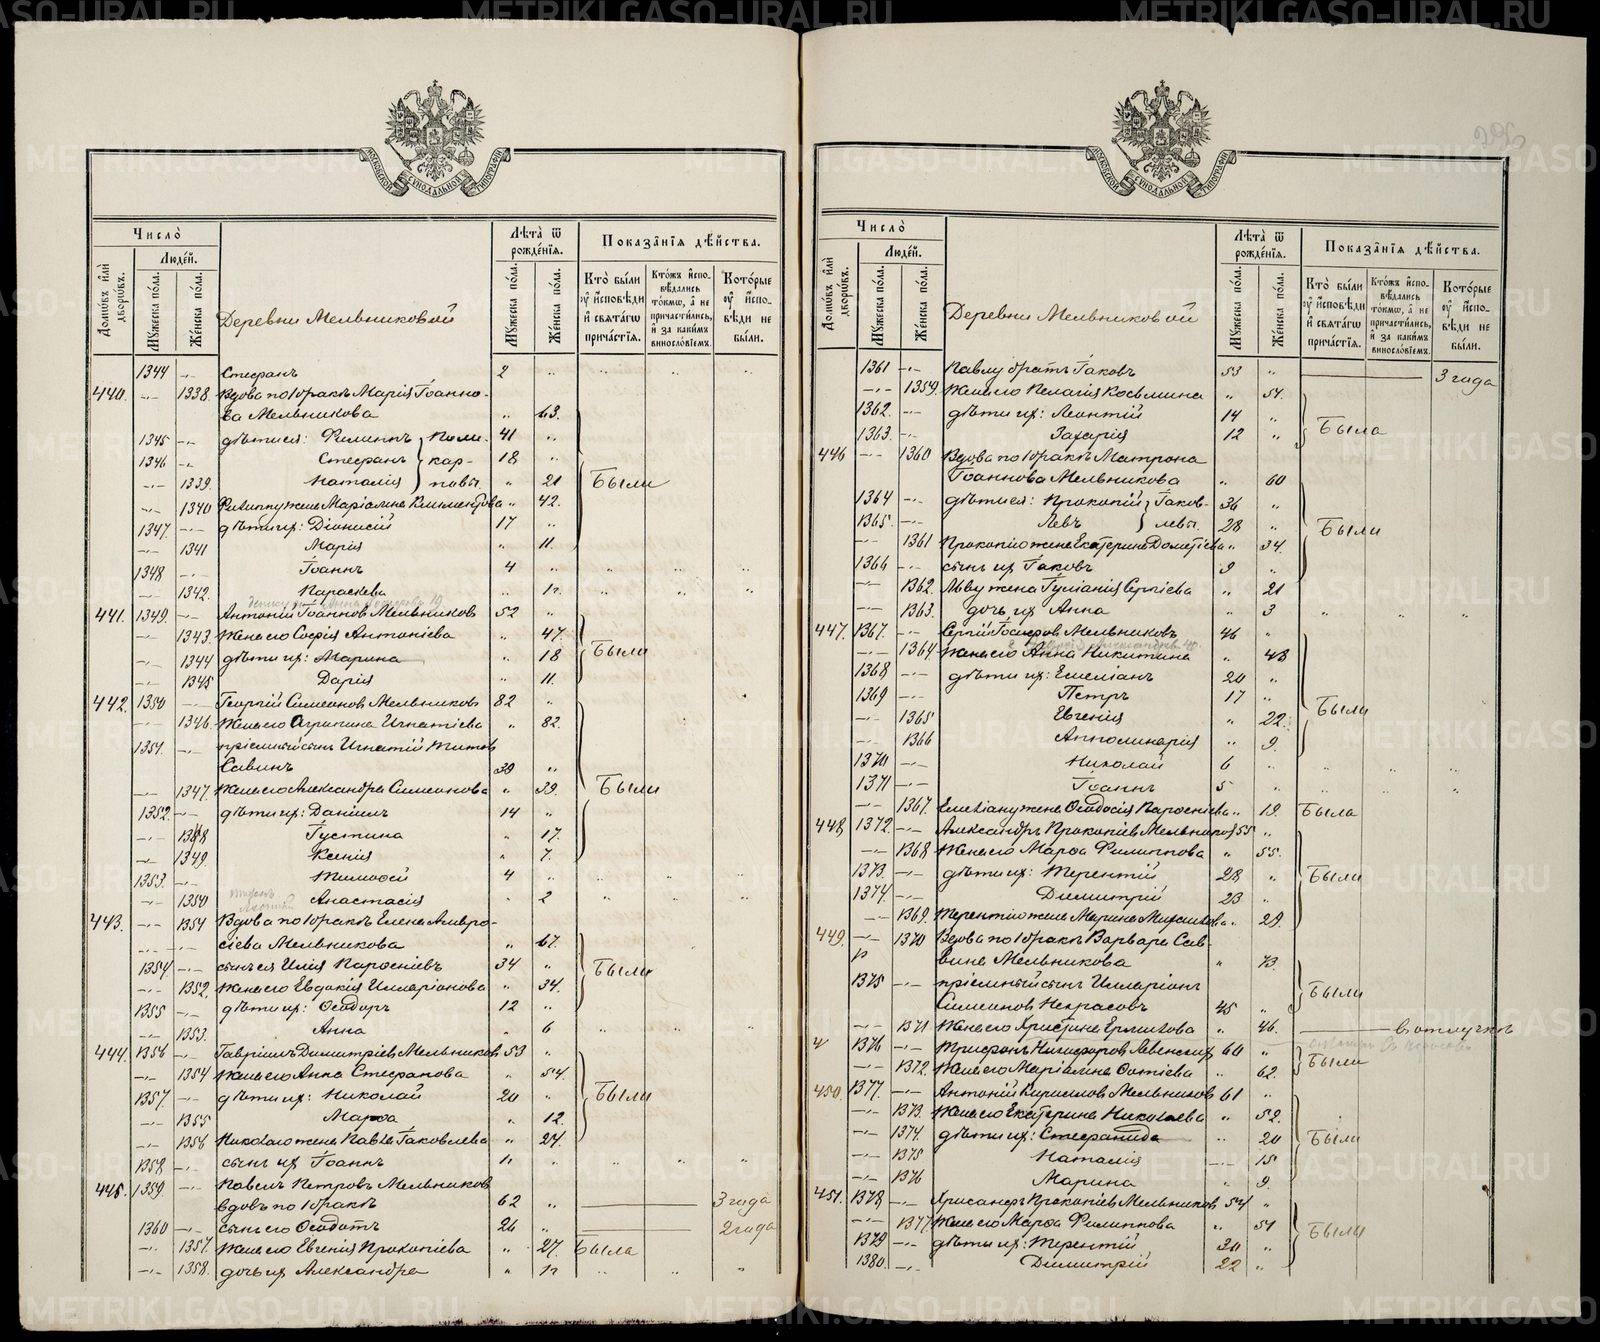 METRIKI.GASO-URAL.RU
МОСКОВСКОЙ СѴНОДАЛЬНОЙ ТИПОГРАФІИ
Число̀
Домѡ́въ и҆лѝ дворѡ́въ.
Люде́й.
Мꙋ́жеска по́ла.
Же́нска по́ла.
Деревни Мельниковой
Лѣ́та ѿ рожде́нїѧ.
Мꙋ́жеска по́ла.
Же́нска по́ла.
Показа̑нїѧ дѣ́йства.
Кто̀ бы́ли ᲂу҆ и҆сповѣ́ди и҆ свѧта́гѡ прича́стїѧ.
Кто́жъ и҆спо- вѣ́дались то́кмѡ, а҆ не причасти́лись, и҆ за каки́мъ виносло́вїемъ.
Кото́рые ᲂу҆ и҆спо- вѣ́ди не бы́ли.
1344 -"- Стефанъ 2 " " "
440. -"- 1338 Вдова по 1 бракѣ Марія Іоанно-
ва Мельникова " 63.
1345 -"- дѣти ея: Филиппъ Поли- 41 "
1346 -"- Стефанъ кар- 18 "
-"- 1339. Наталія повы. " 21 Были
-"- 1340 Филиппу жена Маріамна Климентова " 42.
1347. -"- дѣти их: Діонисій 17 "
-"- 1341 Марія " 11.
1348 -"- Іоаннъ 4 " " " "
-"- 1342. Параскева " 1½ " " "
441. 1349. -"- Антоній Іоанновъ Мельниковъ 52 "
-"- 1343. Жена его Софія Антоніева " 47.
-"- 1344 дѣти их: Марина " 18 Были
-"- 1345 Дарія " 11.
442. 1350 -"- Георгій Симеоновъ Мельниковъ 82 "
-"- 1346. Жена его Агрипина Игнатіева " 82.
1351. -"- пріемный сынъ Игнатій Титовъ
Савинъ 39 "
-"- 1347. Жена его Александра Симеонова " 39. Были
1352. -"- дѣти их: Даніилъ 14 "
-"- 1348 Іустина " 17.
-"- 1349. Ксенія " 7.
1353. -"- Тимоѳей 4 " " " "
-"- 1350 Анастасія " 2 " " "
443. -"- 1351 Вдова по 1 бракѣ Елена Амвро-
сіева Мельникова " 67.
1354 -"- сынъ ея Илія Парѳеніевъ 34 " Были
-"- 1352. Жена его Евдокія Илларіонова " 34.
1355 -"- дѣти их: Ѳеодоръ 12 "
-"- 1353. Анна " 6 " " "
444. 1356 -"- Гавріилъ Димитріевъ Мельниковъ 53 "
-"- 1354 Жена его Анна Стефанова " 54.
1357. -"- дѣти их: Николай 20 " Были
-"- 1355 Марѳа " 12.
-"- 1356 Николаю жена Павла Іаковлева " 24.
1358 -"- сынъ их Іоаннъ 1½ " " " "
445. 1359. -"- Павелъ Петровъ Мельниковъ
вдовъ по 1 бракѣ 62 " 3 года
1360 -"- сынъ его Ѳеодотъ 26 " 2 года
-"- 1357. Жена его Евгенія Прокопіева " 27. Была
-"- 1358. дочь их Александра " 1½ " " "
Число̀
Домѡ́въ и҆лѝ дворѡ́въ.
Люде́й.
Мꙋ́жеска по́ла.
Же́нска по́ла.
Деревни Мельниковой
Лѣ́та ѿ рожде́нїѧ.
Мꙋ́жеска по́ла.
Же́нска по́ла.
Показа̑нїѧ дѣ́йства.
Кто̀ бы́ли ᲂу҆ и҆сповѣ́ди и҆ свѧта́гѡ прича́стїѧ.
Кто́жъ и҆спо- вѣ́дались то́кмѡ, а҆ не причасти́лись, и҆ за каки́мъ виносло́вїемъ.
Кото́рые ᲂу҆ и҆спо- вѣ́ди не бы́ли.
1361 -"- Павлу братъ Іаковъ 53 " 3 года
-"- 1359. Жена его Пелагія Косьмина " 54.
1362. -"- дѣти их: Леонтій 14 " Была
1363. -"- Захарія 12 "
446 -"- 1360 Вдова по 1 бракѣ Матрона
Іоаннова Мельникова " 60
1364 -"- дѣти ея: Прокопій Іаков- 36 "
1365. -"- Левъ левы. 28 " Были
-"- 1361 Прокопію жена Екатерина Дометіева " 34.
1366 -"- сынъ их Іаковъ 9 "
-"- 1362. Льву жена Іуліанія Сергіева " 21
-"- 1363. дочь их Анна " 3 " " "
447. 1367. -"- Сергій Іосифовъ Мельниковъ 46 "
-"- 1364. Жена его Анна Никитина " 43
1368 -"- дѣти их: Емеліанъ 20 "
1369 -"- Петръ 17 "
-"- 1365 Евгенія " 22. Были
-"- 1366 Апполинарія " 9.
1370 -"- Николай 6 " " " "
1371 -"- Іоаннъ 5 " " " "
-"- 1367. Емеліану жена Ѳеодосія Парѳеніева " 19. Была
448 1372. -"- Александръ Прокопіевъ Мельниковъ 55 "
-"- 1368 Жена его Марѳа Филиппова " 55.
1373. -"- дѣти их: Терентій 28 " Были
1374. -"- Димитрій 23 "
-"- 1369. Терентію жена Марина Михаилова " 29.
449. -"- 1370 Вдова по 1 бракѣ Варвара Сав-
вина Мельникова " 73.
1375 -"- пріемный сынъ Илларіонъ
Симеоновъ Некрасовъ 45 " Были
-"- 1371 Жена его Христина Ермилова " 46. въ отлучкѣ
1376 -"- Трифонъ Никифоровъ 60 "
-"- 1372. Жена его Маріамна Фотіева " 62. Были
450. 1377. -"- Антоній Кирилловъ Мельниковъ 61 "
-"- 1373. Жена его Екатерина Николаева " 52.
-"- 1374. дѣти их: Стефанида " 20 Были
-"- 1375 Наталія -"- 15
-"- 1376 Марина " 9.
451. 1378 -"- Хрисанфъ Прокопіевъ Мельниковъ 54 "
-"- 1377. Жена его Марѳа Филиппова " 51
1379 -"- дѣти их: Терентій 20 " Были
1380. -"- Димитрій 22 "